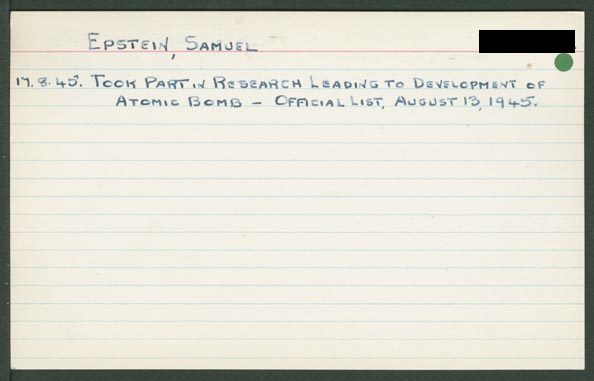 EPSTEIN, SAMUEL
17.8.45. TOOK PART IN RESEARCH LEADING TO DEVELOPMENT OF
ATOMIC BOMB – OFFICIAL LIST, AUGUST 13, 1945.